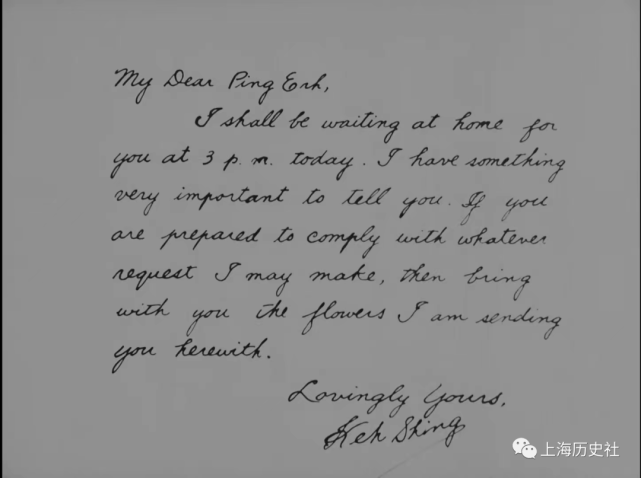 My Dear Ping Erh,
I shall be waiting at home for
you at 3 p. m. today. I have something
very important to tell you. If you
are prepared to comply with whatever
request I may make, then bring
with you the flowers I am sending
you herewith.
Lovingly Yours,
Keh Shing
上海历史社